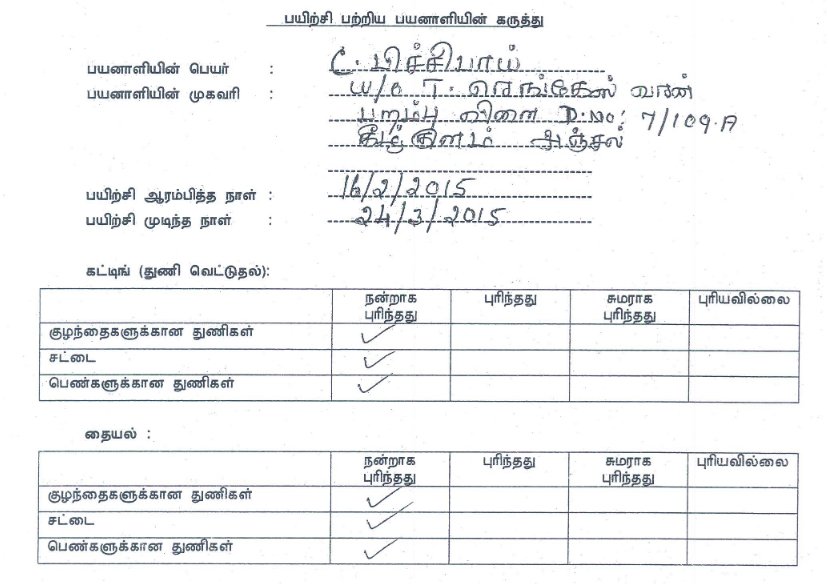 பயிற்சி பற்றிய பயனாளியின் கருத்து
பயனாளியின் பெயர் : C. பிச்சிபாய்
பயனாளியின் முகவரி : W/O T. வான்
பறம்பு விளை D.No: 7/109.A
கீழ்குளம் அஞ்சல்
பயிற்சி ஆரம்பித்த நாள் : 16/2/2015
பயிற்சி முடிந்த நாள் : 24/3/2015
கட்டிங் (துணி வெட்டுதல்):
நன்றாக புரிந்தது புரிந்தது சுமராக புரிந்தது புரியவில்லை
குழந்தைகளுக்கான துணிகள் ✓
சட்டை ✓
பெண்களுக்கான துணிகள் ✓
தையல் :
நன்றாக புரிந்தது புரிந்தது சுமராக புரிந்தது புரியவில்லை
குழந்தைகளுக்கான துணிகள் ✓
சட்டை ✓
பெண்களுக்கான துணிகள் ✓